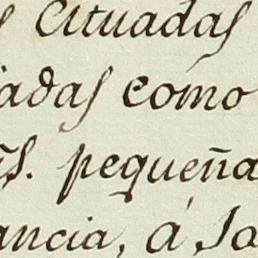 situadas
como
pequeña
ancia, á Sa